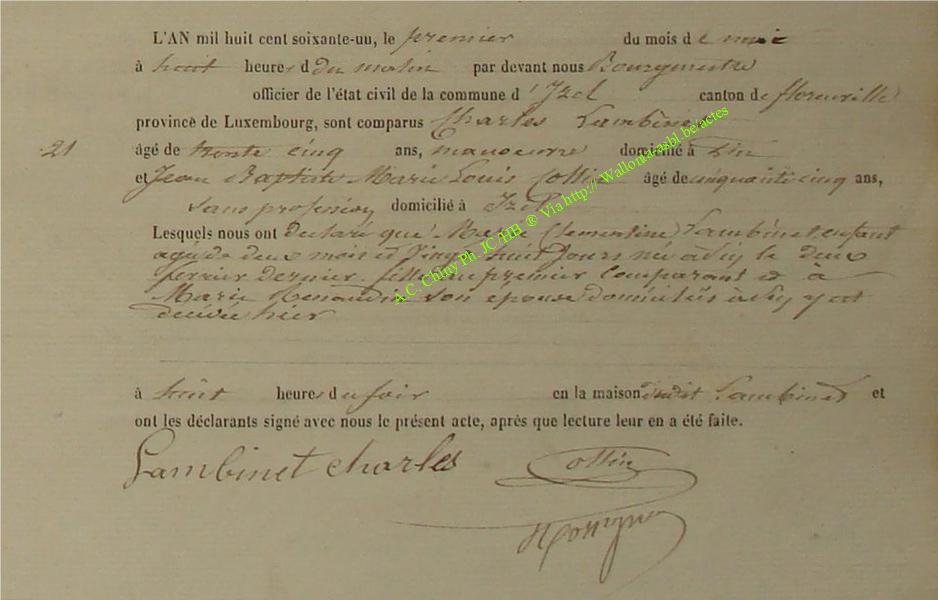 L'AN mil huit cent soixante-un, le premier du mois de mai
à huit heures du matin par devant nous Bourgmestre
officier de l'état civil de la commune d'Izel canton de florenville
province de Luxembourg, sont comparus Charles Lambinet
21
âgé de trente cinq ans, manoeuvre domicilié à
et Jean Baptiste Marie Louis Collin âgé de cinquante cinq ans,
sans profession domicilié à Izel
Lesquels nous ont déclaré que Marie Clementine Lambinet enfant
agée de deux mois et vingt huit jours née à le deux
fevrier dernier fille du premier comparant et
Marie Renaudin son épouse domiciliés à y est
décédée hier
à huit heures du soir en la maison dudit Lambinet et
ont les déclarants signé avec nous le présent acte, après que lecture leur en a été faite.
Lambinet Charles Collin
A.C. Chiny Ph. JC/HB ® Via http:// Wallonia-asbl.be/actes